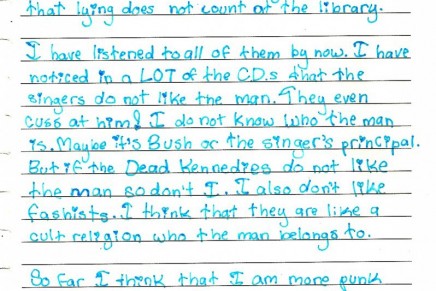 that lying does not count at the library.
I have listened to all of them by now. I have
noticed in a LOT of the CD.s that the
singers do not like the man. They even
cuss at him! I do not know who the man
is. Maybe it's Bush or the singer's principal.
But if the Dead Kennedies do not like
the man so don't I. I also don't like
fashists. I think that they are like a
cult religion who the man belongs to.
So far I think that I am more punk